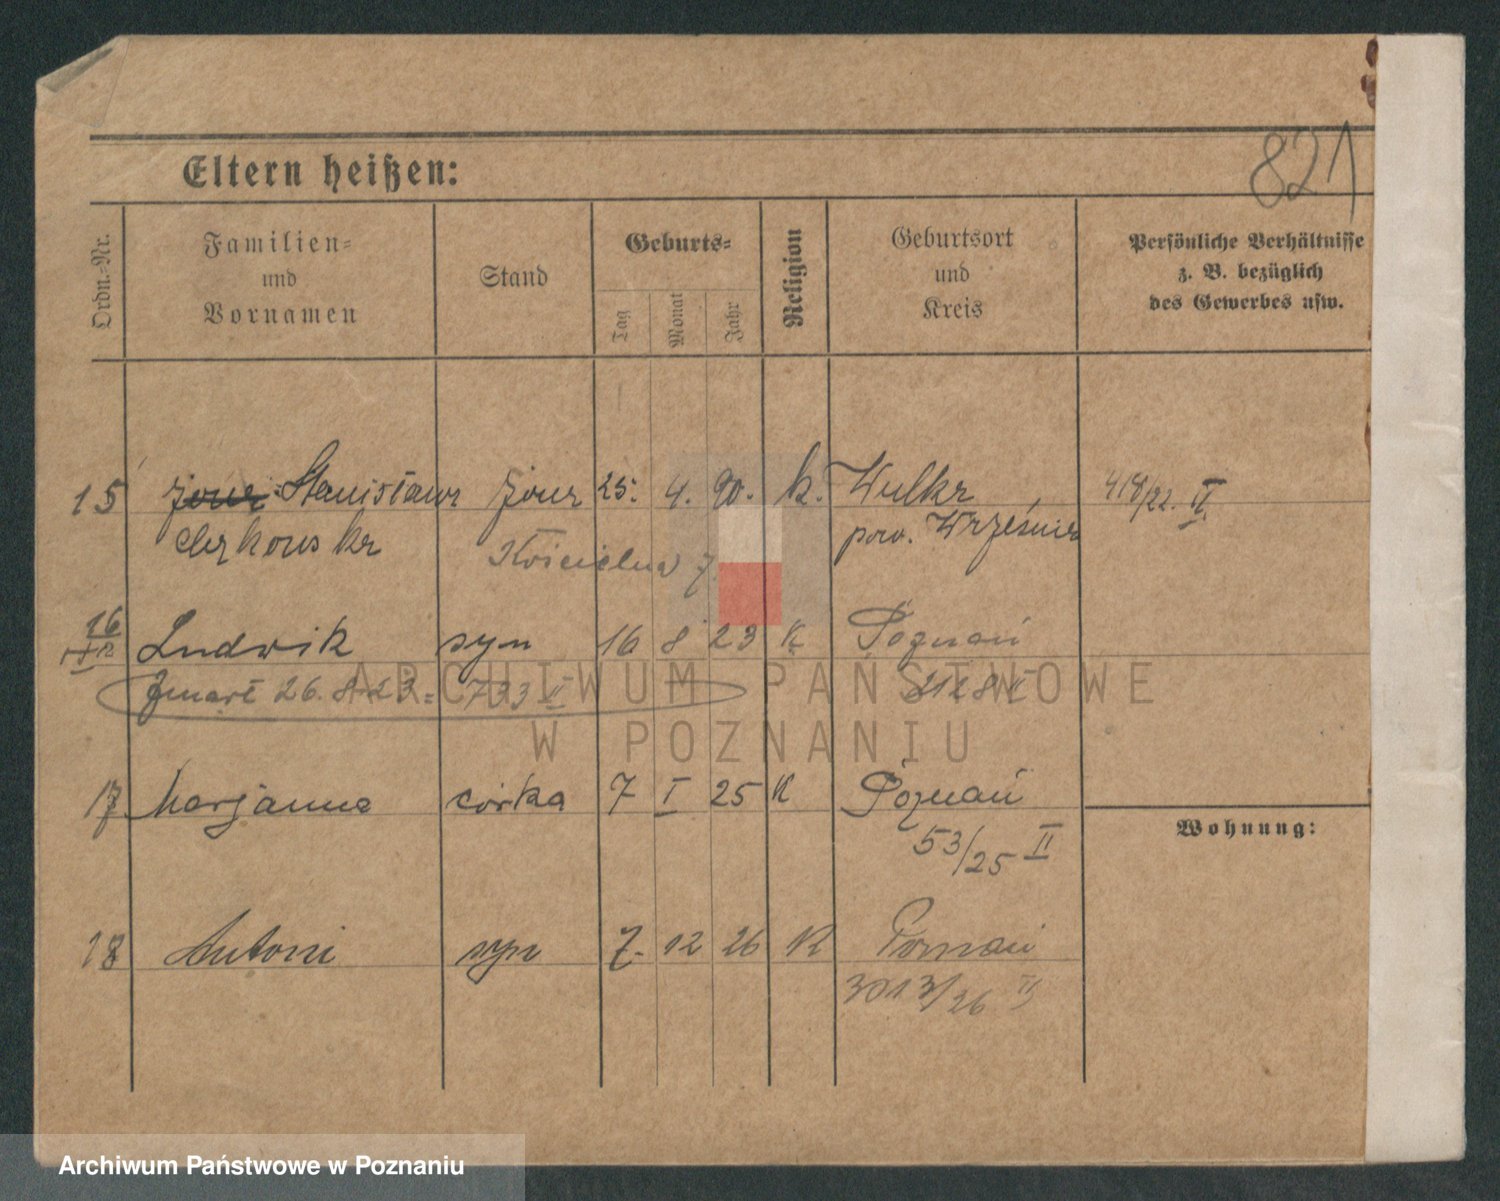 821
Eltern heißen:
Ordn.-Nr.
Familien-
und
Vornamen
Stand
Geburts-
Tag
Monat
Jahr
Religion
Geburtsort
und
Kreis
Persönliche Verhältnisse
z. B. bezüglich
des Gewerbes usw.
15 żona Stanisława żona 25. 4. 90. k. Wulka 418/22. II
pow. Września
Kościelna 7
16 Ludwik syn 16 8 23 K Poznań
Zmarł 26.8.23. 733 II
17 Marjanna córka 7 I 25 K Poznań
53/25 II
Wohnung:
18 Antoni syn 7. 12 26 K Poznań
3013/26 II
ARCHIWUM PAŃSTWOWE
W POZNANIU
Archiwum Państwowe w Poznaniu